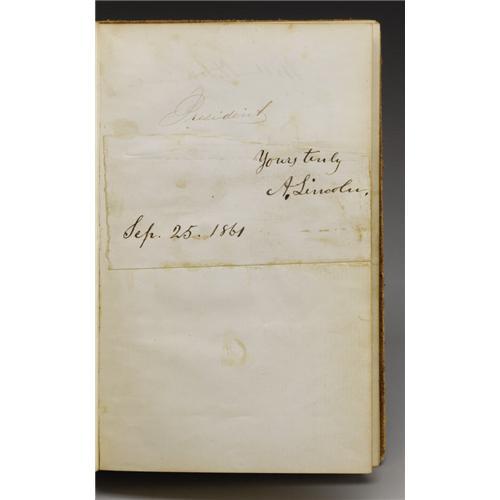 President
Yours truly
A. Lincoln.
Sep. 25. 1861